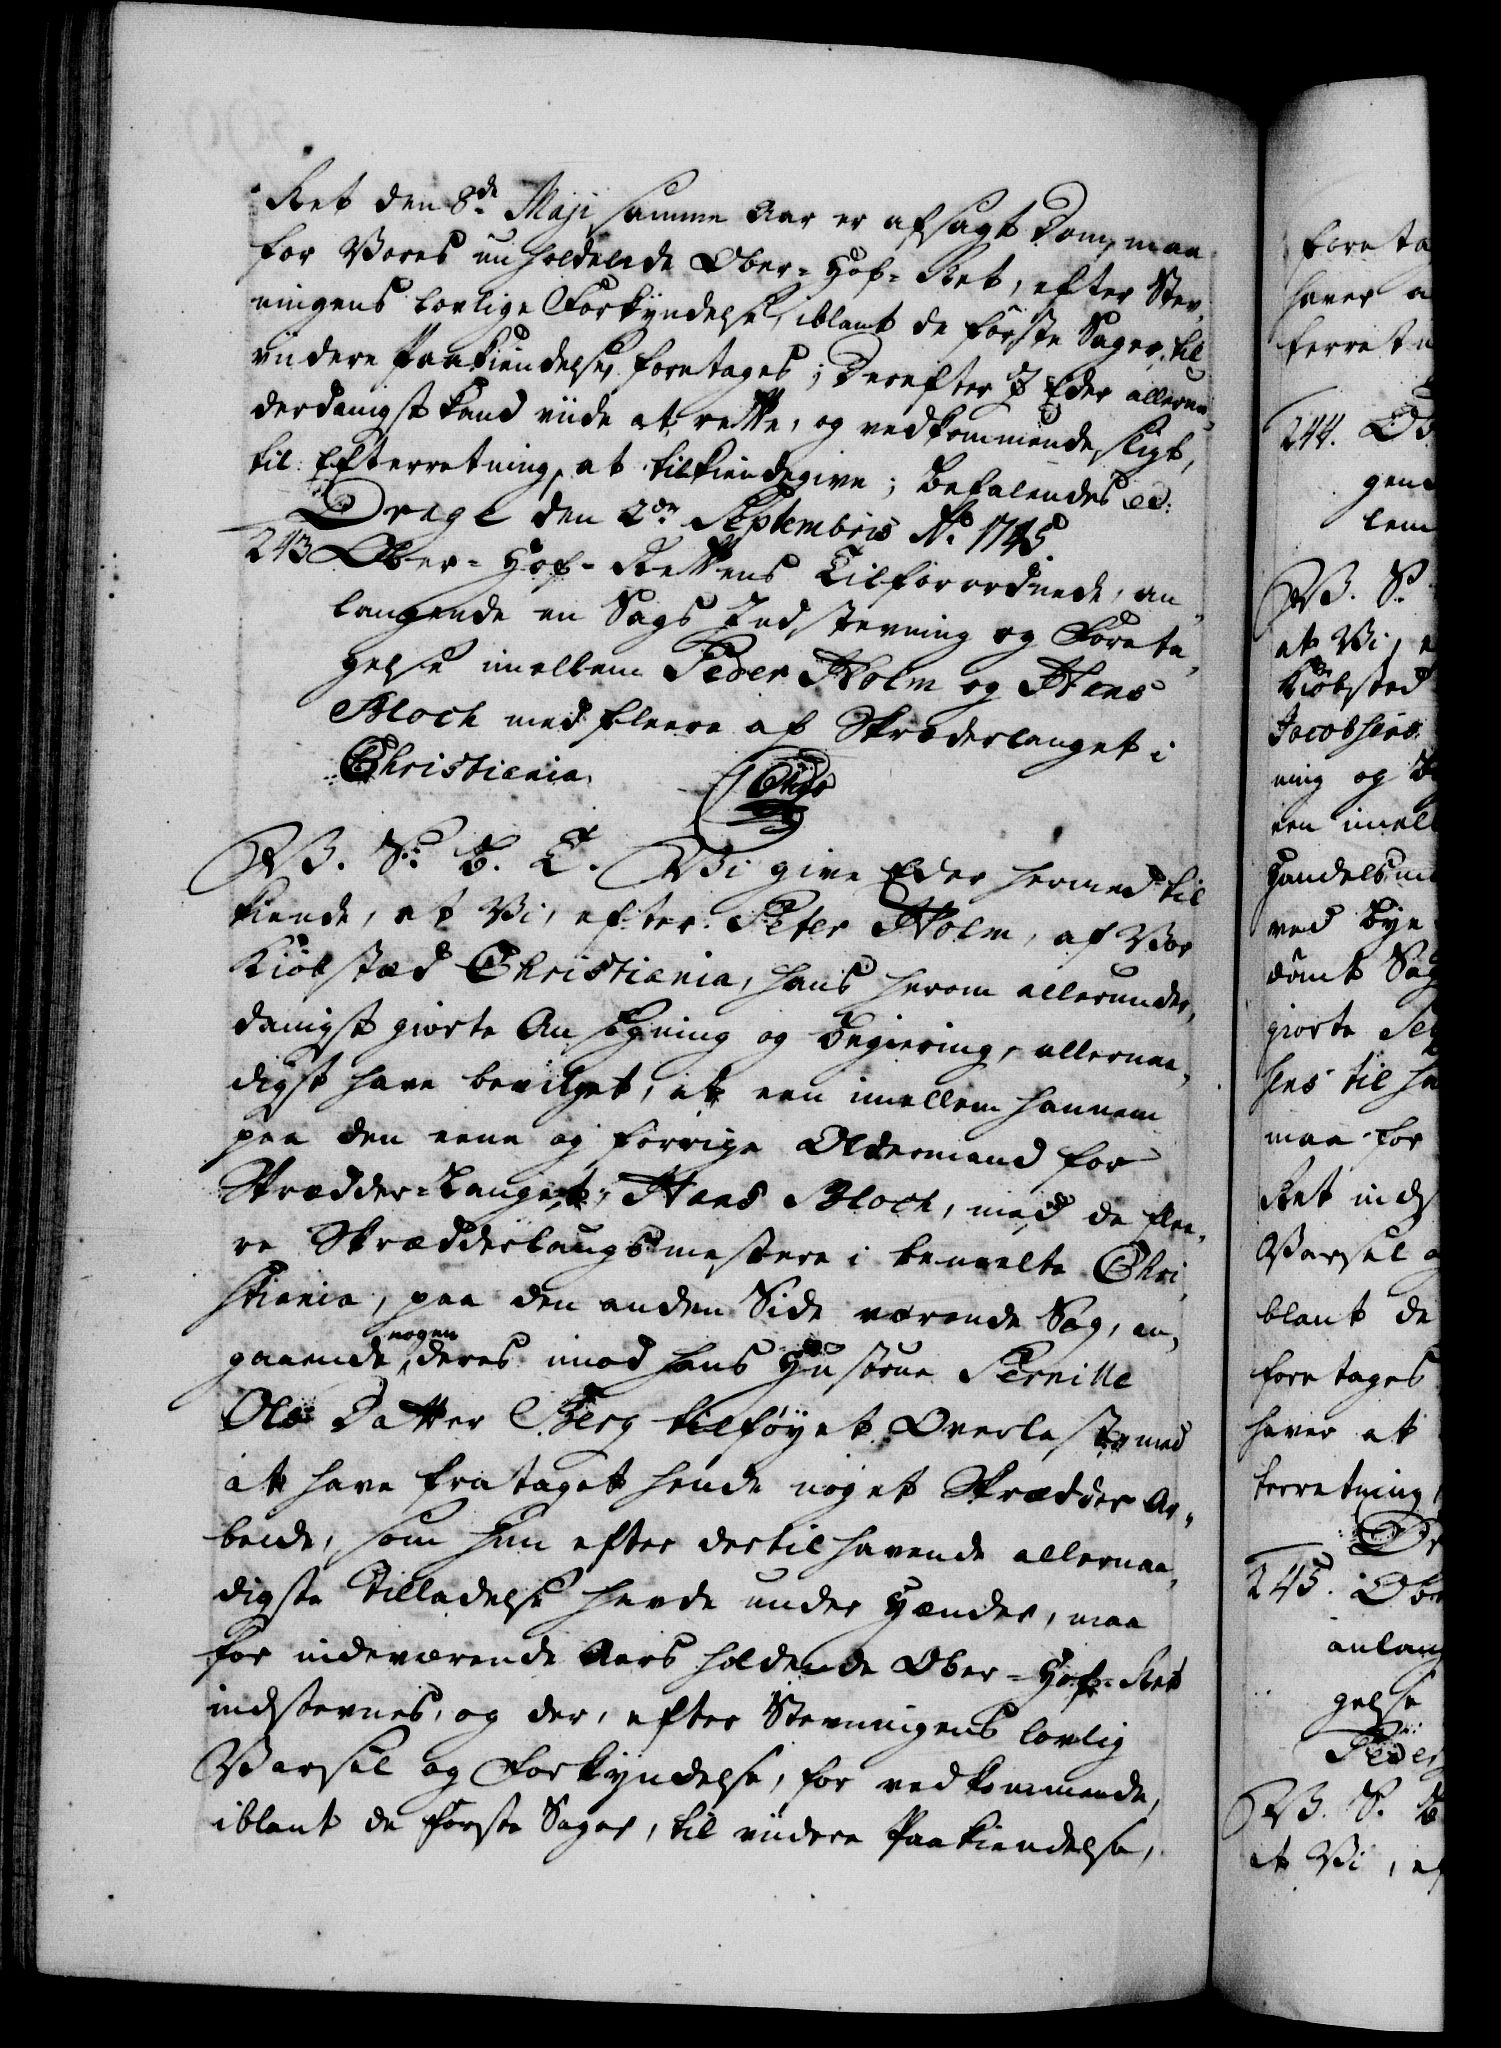 Ret den 8de Maji samme Aar er afsagt Dom, maa
for Vores nu holdelede Ober-Hof-Ret, efter Stev-
ningens lovlige Forkyndelse, iblant de første Sager, til
viidere Paakiendelse, foretages; Derefter I Eder allerun-
derdanigst kand viide at rette, og vedkommende sligt,
til Efterretning, at tilkiendegive; Befalendes ec:
Drage den 2den Septembris Ao. 1745.
243 Ober-Hof-Rettens Tilforordnede, an-
langende en Sags Indstevning og Foreta-
gelse imellem Peder Holm og Hans
Bloch med fleere af Skræderlauget i
Christiania.
V. S. B. T. Vi give Eder hermed til
kiende, at Vi, efter Peter Holm, af Vor
Kiøbsted Christiania, hans herom allerunder-
danigst giorte Ansøgning og Begiering, allernaa-
digst have bevilget, at een imellem hannem
paa den eene og forrige Oldermand for
Skrædder-Lauget, Hans Bloch, med de flee-
re Skrædderlaugsmestere i bemelte Chri-
stiania, paa den anden Side værende Sag, an-
gaaende nogen deres imod hans Hustrue Pernille
Ols Datter Berg tilføyet Overlast, med
at have frataget hende noget Skrædder Ar-
beide, som hun efter dertil havende allernaa-
digste Tilladelse havde under Hænder, maa
for indeværende Aars holdende Ober-Hof-Ret
indstevnes, og der, efter Stevningens lovlig
Varsel og Forkyndelse, for vedkommende,
iblant de første Sager, til viidere Paakiendelse,
foreta
haver a
terretn
244. Ob
gen
lem
V. S.
at Vi, e
Kiøbsted
Jacobsens
ning og B
een imell
Handelsm
ved Bye
dømt Sag
giorte
hens til ha
maa for
Ret inds
Varsel o
blant de
foretages
haver at
terretning
Dr
245. Obe
anlang
gelse
Peder
V. S. B
at Vi, ef